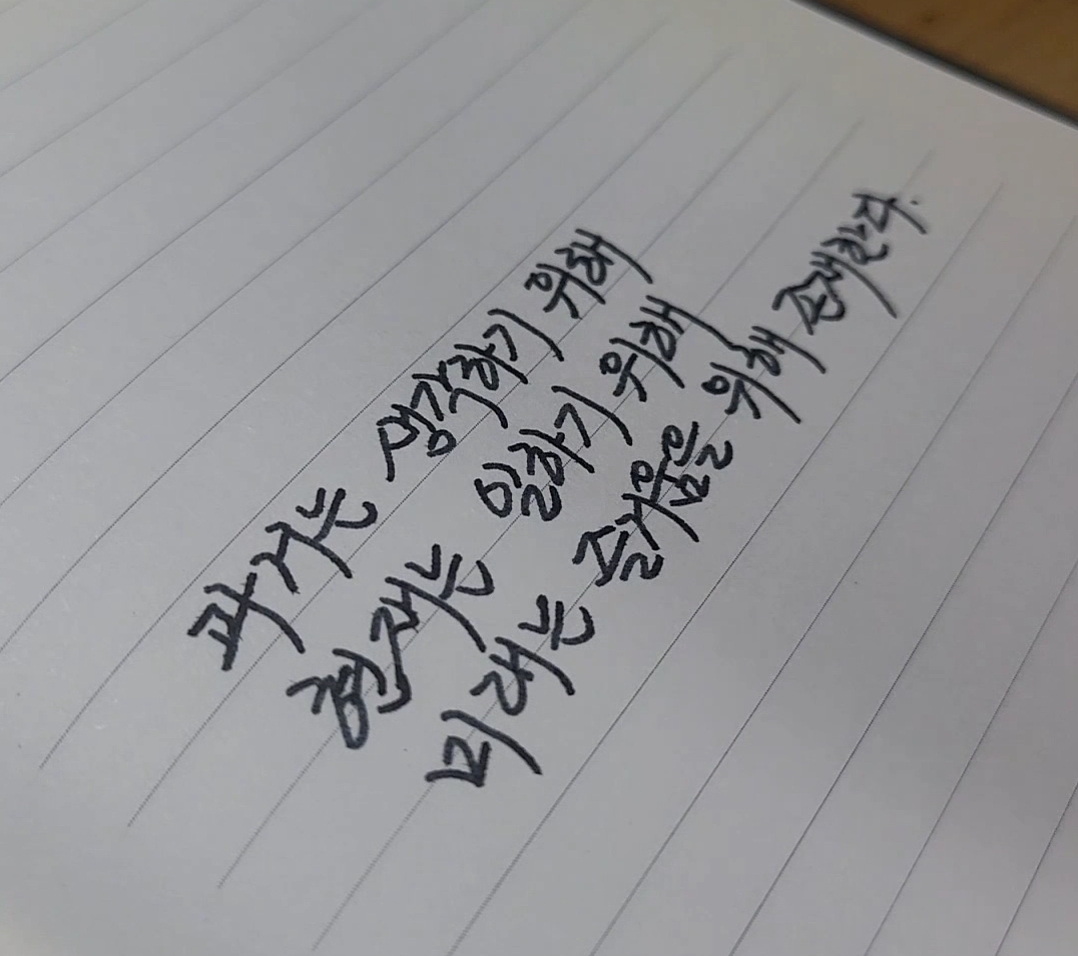 과거는 생각하기 위해
현재는 일하기 위해
미래는 즐거움을 위해 존재한다.